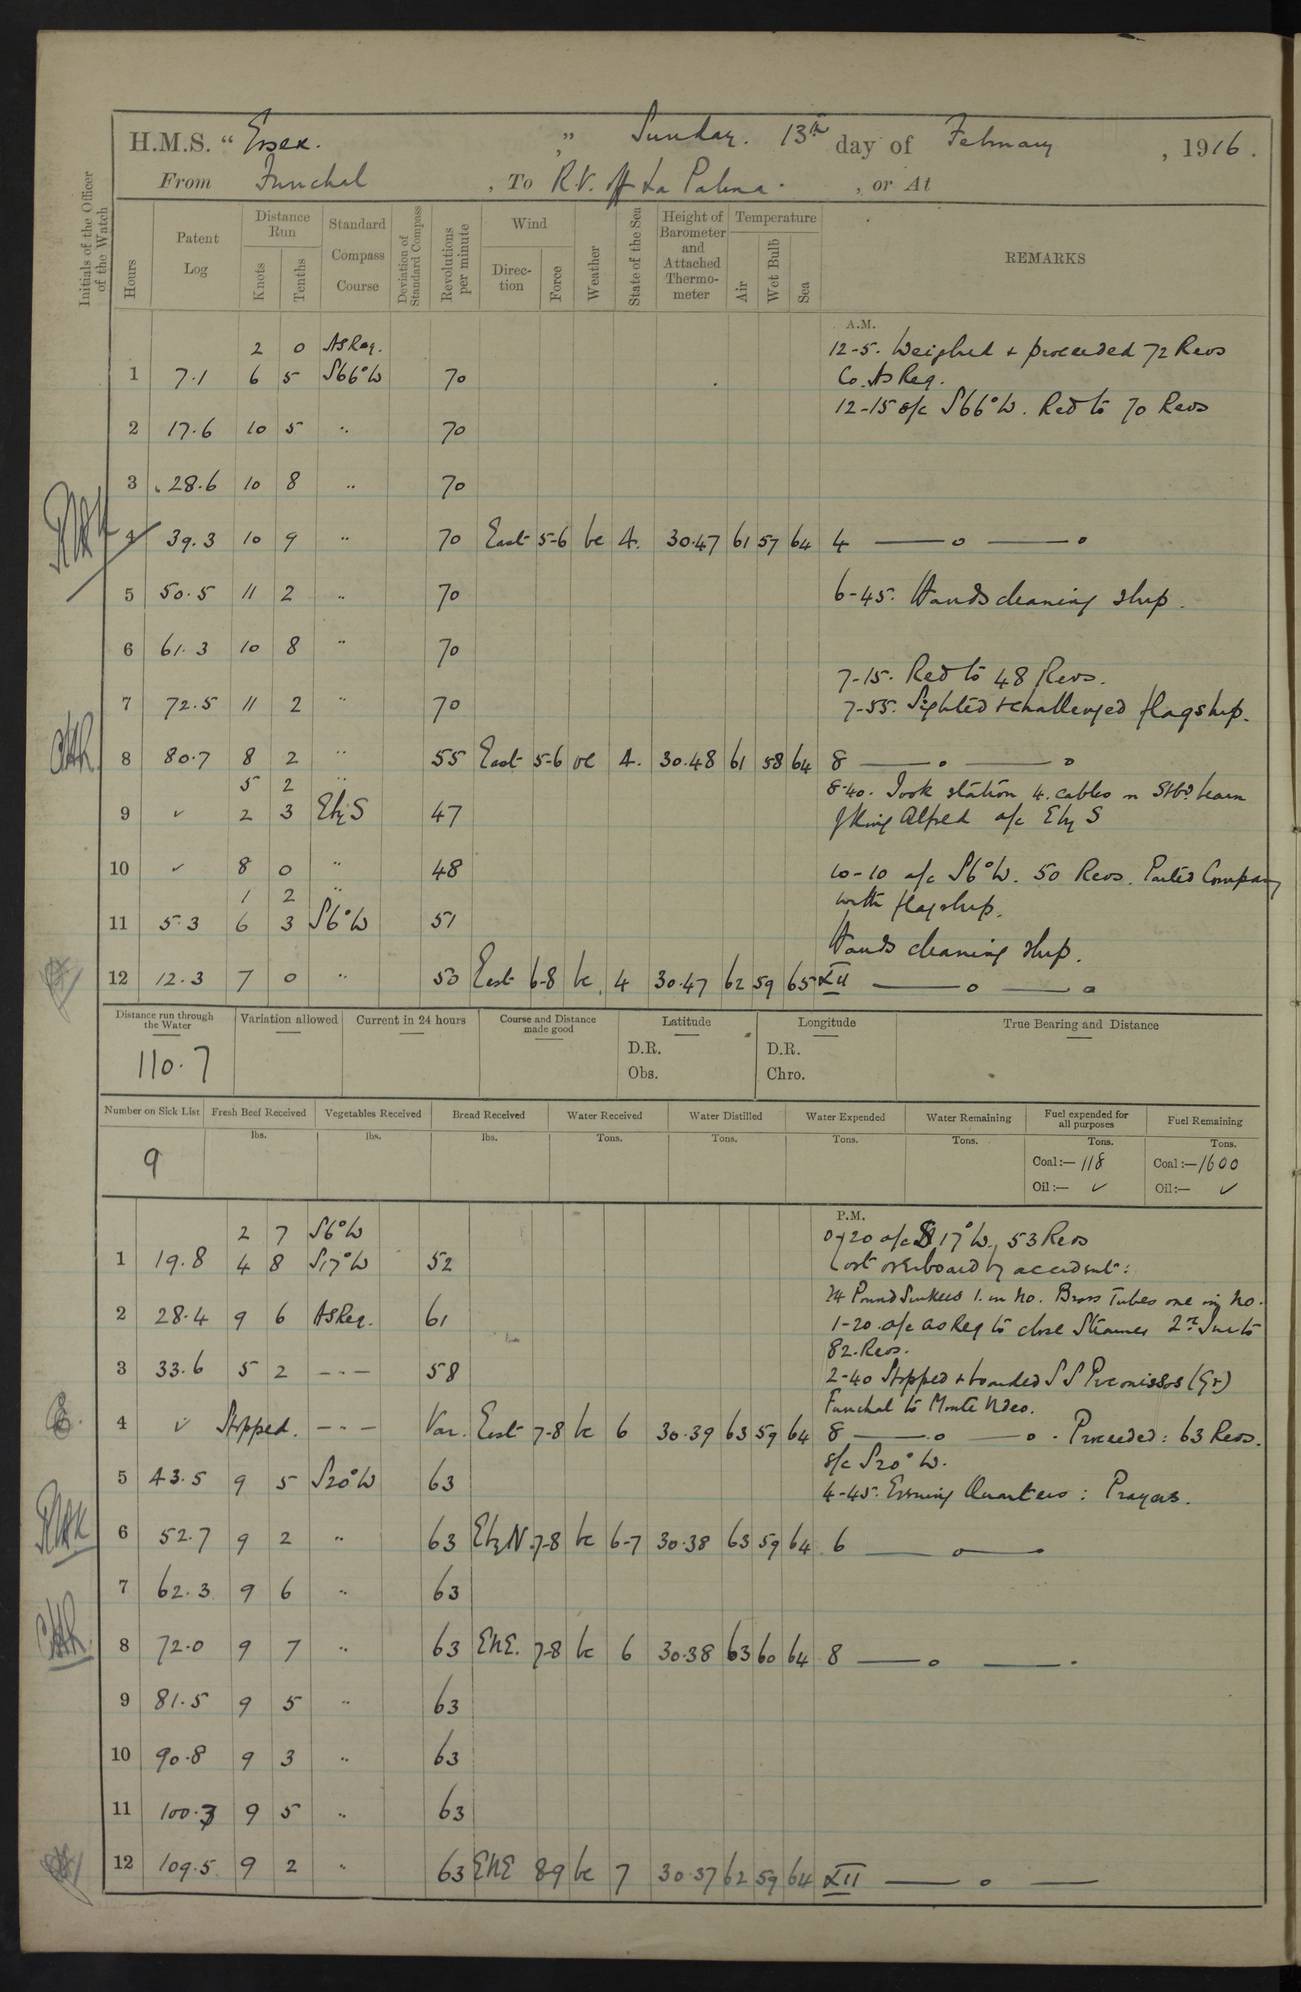 H.M.S. " Essex. " Sunday. 13th day of February, 1916.
From Funchal, To R.V. off La Palma. , or At
Initials of the Officer of the Watch
Hours
Patent Log
Distance Run
Knots
Tenths
Standard Compass Course
Deviation of Standard Compass
Revolutions per minute
Wind
Direction
Force
Weather
State of the Sea
Height of Barometer and Attached Thermometer
Temperature
Air
Wet Bulb
Sea
REMARKS
A.M.
2 0 As Req. 12-5. Weighed & proceeded 72 Revs
1 7.1 6 5 S66°W 70 Co. As Req.
12-15 s/c S66°W. Red to 70 Revs
2 17.6 10 5 " 70
3 28.6 10 8 " 70
4 39.3 10 9 " 70 East 5-6 bc 4. 30.47 61 57 64 4
5 50.5 11 2 " 70 6-45. Hands cleaning ship.
6 61.3 10 8 " 70
7-15. Red to 48 Revs.
7 72.5 11 2 " 70 7-55. Sighted & challenged flagship.
8 80.7 8 2 " 55 East 5-6 oc 4. 30.48 61 58 64 8
5 2 " 8-40. Took station 4. cables on Stbd beam
9 ✓ 2 3 EbyS 47 of King Alfred a/c E by S
10 ✓ 8 0 " 48 10-10 a/c S6°W. 50 Revs. Parted Company
1 2 " with flagship.
11 5.3 6 3 S6°W 51
Hands cleaning ship.
12 12.3 7 0 " 50 East 6-8 bc 4 30.47 62 59 65 XII
Distance run through the Water
Variation allowed
Current in 24 hours
Course and Distance made good
Latitude
Longitude
True Bearing and Distance
110.7
D.R.
Obs.
D.R.
Chro.
Number on Sick List
Fresh Beef Received
Vegetables Received
Bread Received
Water Received
Water Distilled
Water Expended
Water Remaining
Fuel expended for all purposes
Fuel Remaining
lbs. lbs. lbs. Tons. Tons. Tons. Tons. Tons. Tons.
9
Coal:— 118 Coal:— 1600
Oil:— ✓ Oil:— ✓
P.M.
2 7 S6°W 0-20 a/c S17°W, 53 Revs
1 19.8 4 8 S17°W 52 Lost overboard by accident:
14 Pound Sinkers 1. in No. Brass Tubes one in No.
2 28.4 9 6 As Req. 61 1-20. a/c as Req to close Steamer
82. Revs.
3 33.6 5 2 - - - 58 2-40 Stopped & boarded S S (Gr)
Funchal to Monte Video.
4 ✓ Stopped. - - - Var. East 7-8 bc 6 30.39 63 59 64 8 . Proceeded: 63 Revs.
s/c S20°W.
5 43.5 9 5 S20°W 63 4-45. Evening Quarters: Prayers.
6 52.7 9 2 " 63 EbyN 7-8 bc 6-7 30.38 63 59 64 6
7 62.3 9 6 " 63
8 72.0 9 7 " 63 ENE. 7-8 bc 6 30.38 63 60 64 8
9 81.5 9 5 " 63
10 90.8 9 3 " 63
11 100.3 9 5 " 63
12 109.5 9 2 " 63 ENE 8-9 bc 7 30.37 62 59 64 XII